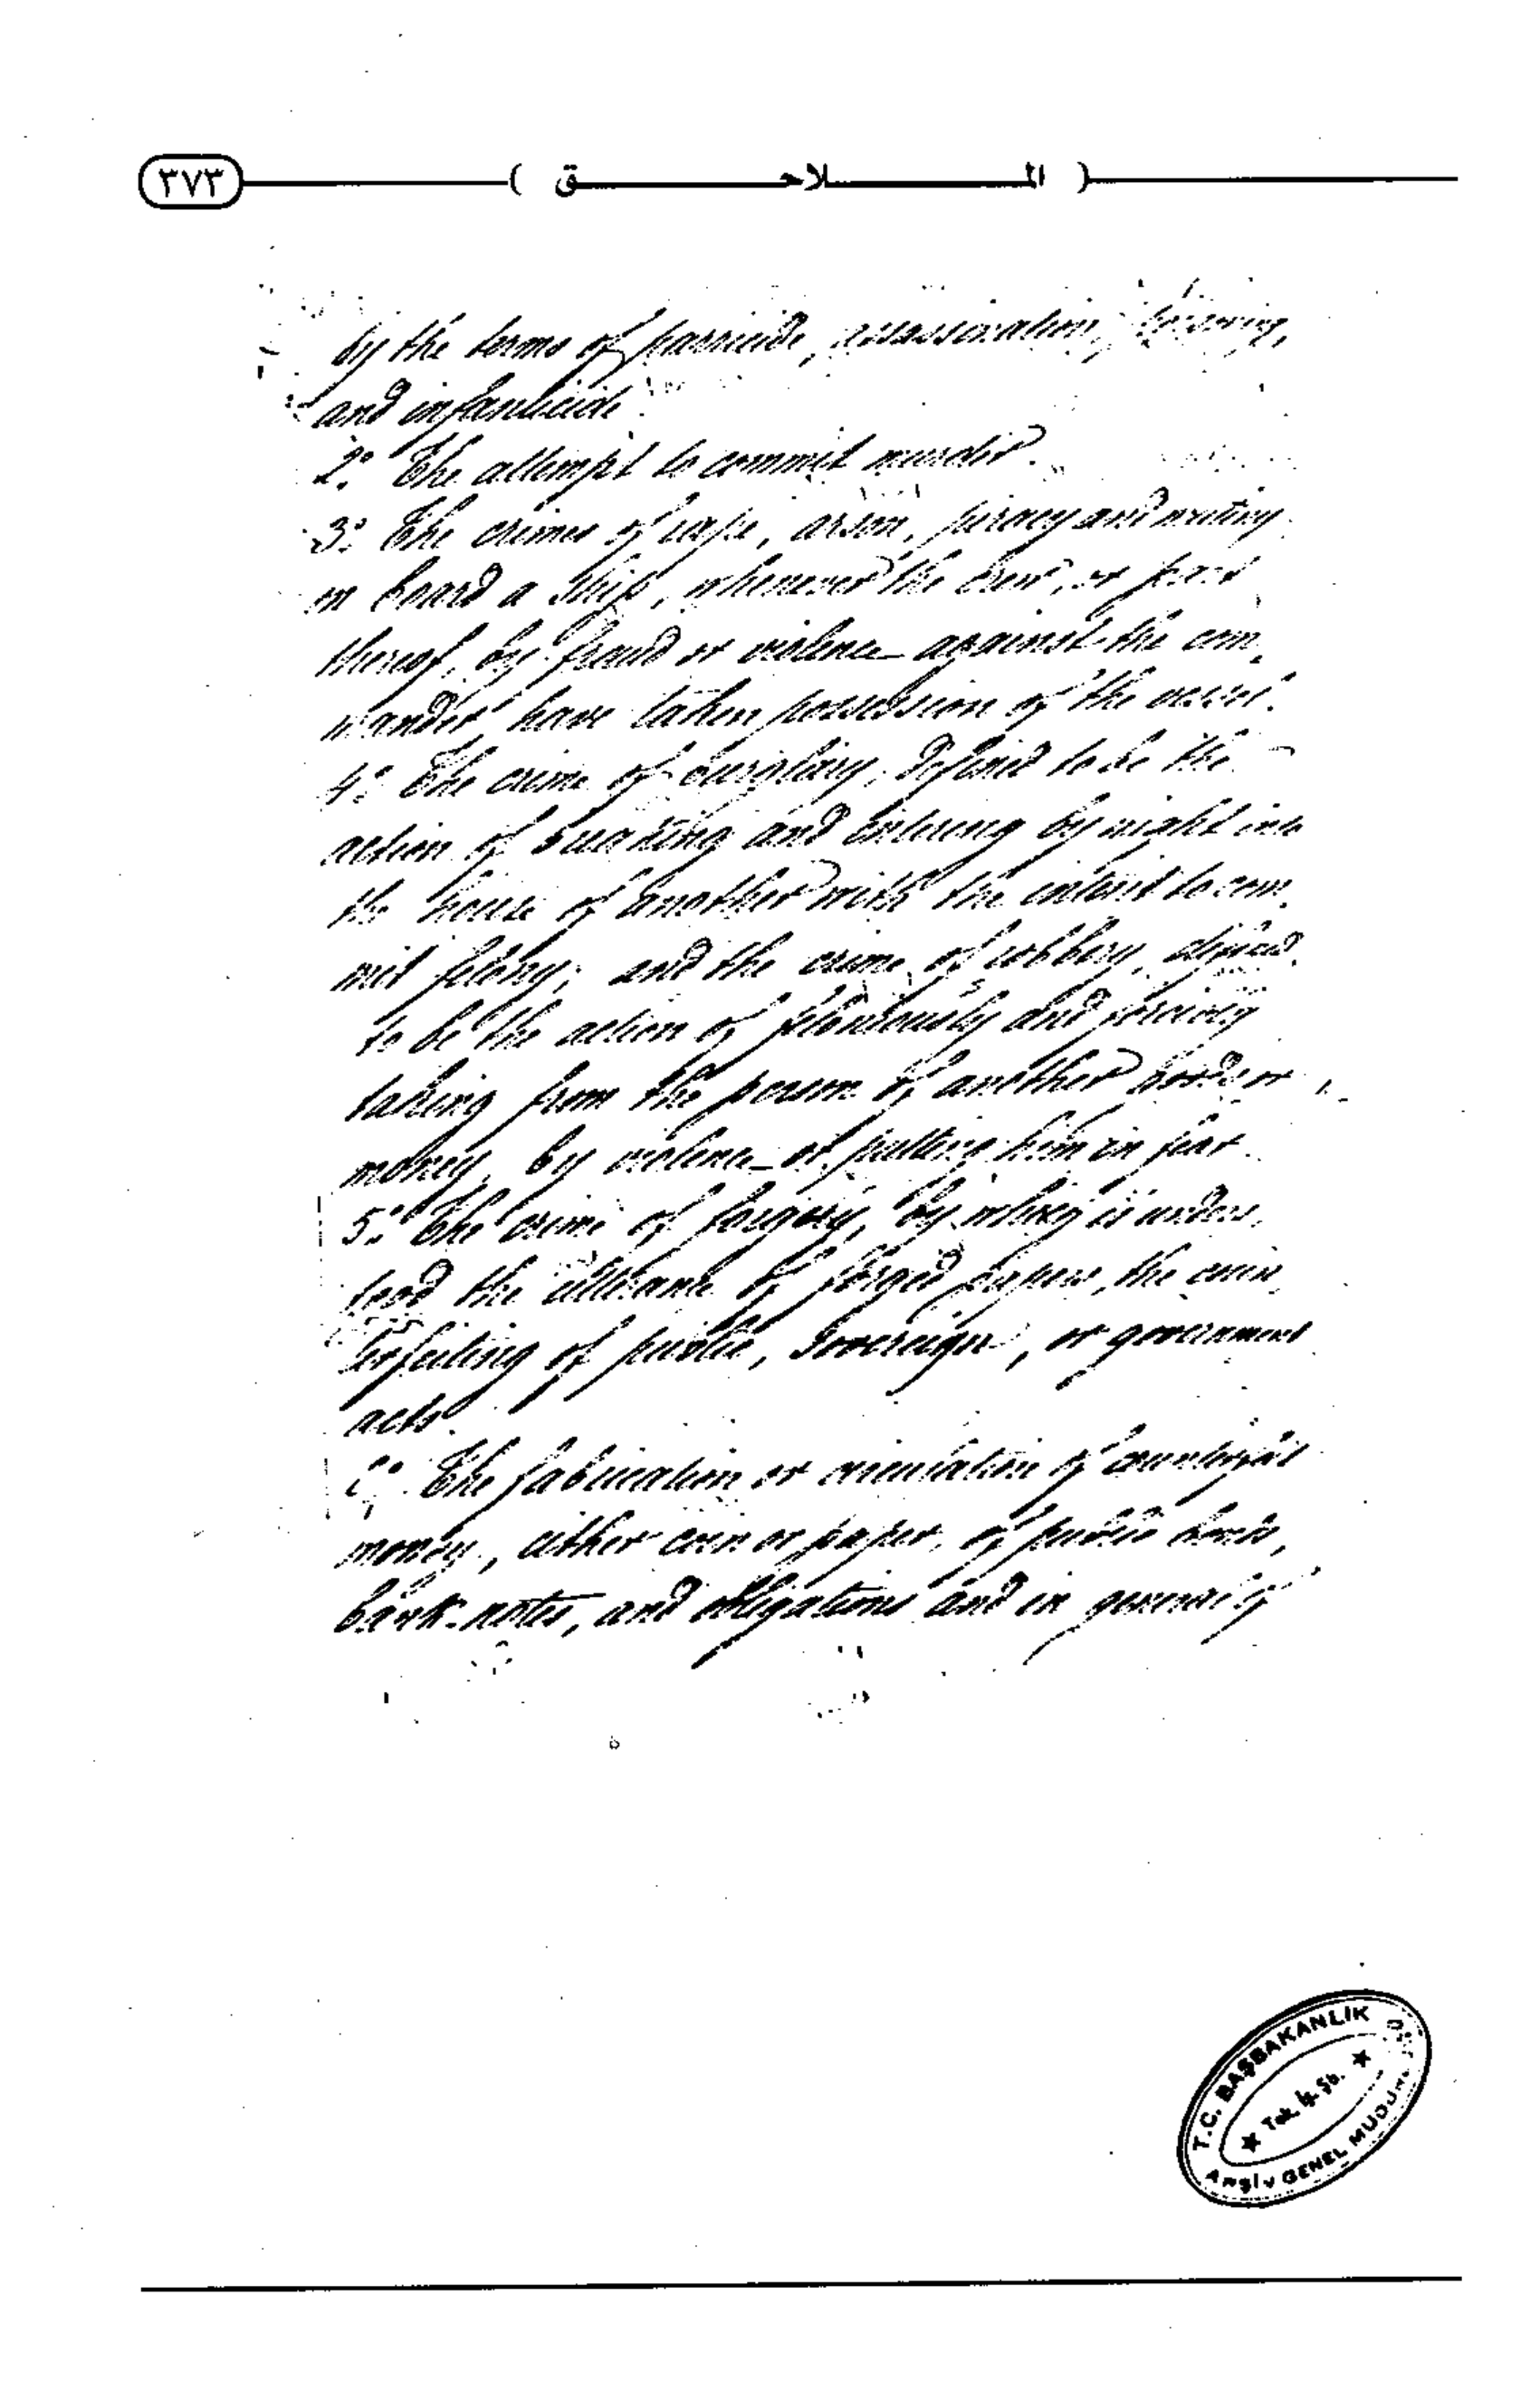 ٣٧٣ ( الملاحق )
by the terms of parricide, assassination, poisoning,
and infanticide.
2º. The attempt to commit murder.
3º. The crimes of rape, arson, piracy and mutiny
on board a ship, whenever the crew, or part
thereof, by fraud or violence against the com,
mander, have taken possession of the vessel.
4º. The crime of burglary, defined to be the
action of breaking and entering by night into
the house of another with the intent to com,
mit felony; and the crime of robbery, defined
to be the action of feloniously and forcibly
taking from the person of another goods or
money, by violence or putting him in fear.
5º. The crime of forgery, by which is unders,
tood the utterance of forged papers, the coun,
terfeiting of public, sovereign, or government
acts.
6º. The fabrication or circulation of counterfeit
money, either coin or paper, of public bonds,
bank-notes, and obligations and in general of
T.C. BAŞBAKANLIK
★ Tek. İş. Şb. ★
ARŞİV GENEL